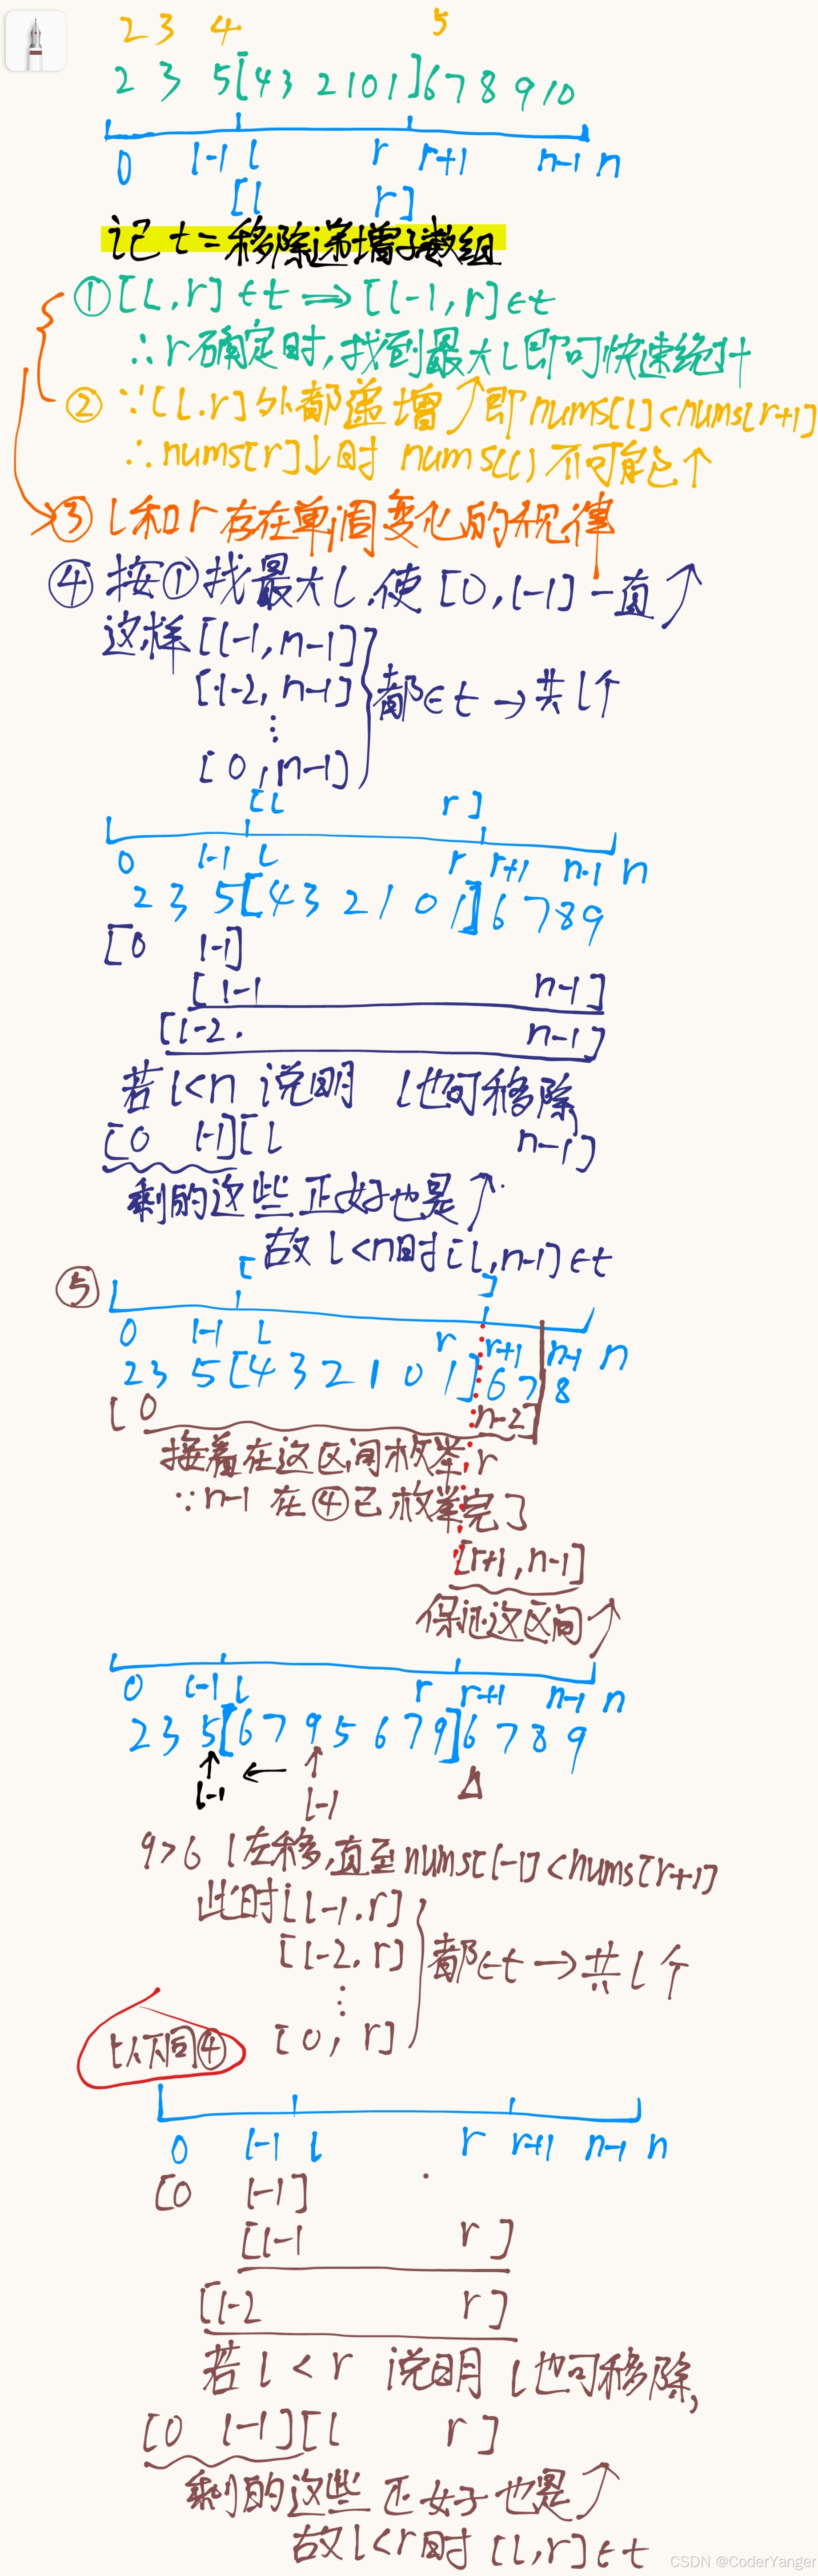 2 3 4 5
2 3 5[43 2101]678910
0 l-1 l r r+1 n-1 n
[l r]
记 t=移除递增子数组
①[L,r]∈t⇒[l-1,r]∈t
∴r确定时,找到最大l即可快速统计
②∵[l.r]外都递增↗即nums[l]<nums[r+1]
∴nums[r]↓时 nums(l)不可能↑
③l和r存在单调变化的规律
④按①找最大l,使[0,l-1]一直↗
这样[l-1,n-1]
[l-2,n-1] 都∈t→共l个
⋮
[0,n-1]
[l r]
0 l-1 L r r+1 n-1 n
2 3 5[43 2 1 0 1]6 789
[0 l-1]
[l-1 n-1]
[l-2. n-1]
若l<n 说明 l也可移除
[0 l-1][l n-1]
剩的这些正好也是↗
故l<n时[l,n-1]∈t
⑤ [ ]
0 l-1 L r r+1 n-1 n
23 5[4 3 2 1 0 1]6 7 8
[0 n-2]
接着在这区间枚举r
∵n-1 在④已枚举完了
[r+1,n-1]
保证这区间↗
0 l-1 l r r+1 n-1 n
2 3 5[6 7 9 5 6 7 9]6 7 8 9
↑ ← ↑ △
l-1 l-1
9>6 l左移,直至nums[l-1]<nums[r+1]
此时[l-1.r]
[l-2.r] 都∈t→共l个
⋮
[0,r]
以下同④
0 l-1 l r r+1 n-1 n
[0 l-1]
[l-1 r]
[l-2 r]
若l<r 说明 l也可移除,
[0 l-1][l r]
剩的这些 正好也是↗
故l<r时 [l,r]∈t
CSDN @CoderYanger